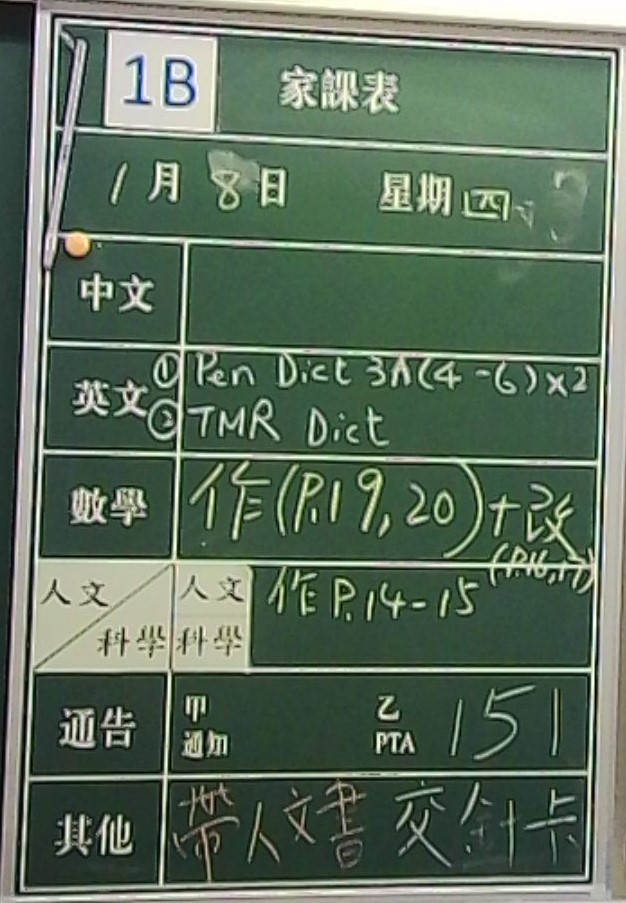 1B 家課表
1月8日 星期四
中文
英文 ① Pen Dict 3A(4-6)x2
② TMR Dict
數學 作(P.19,20)+改
(P.16,17)
人文 科學 人文 科學 作 P.14-15
通告 甲 通知 乙 PTA 151
其他 帶人文書 交針卡